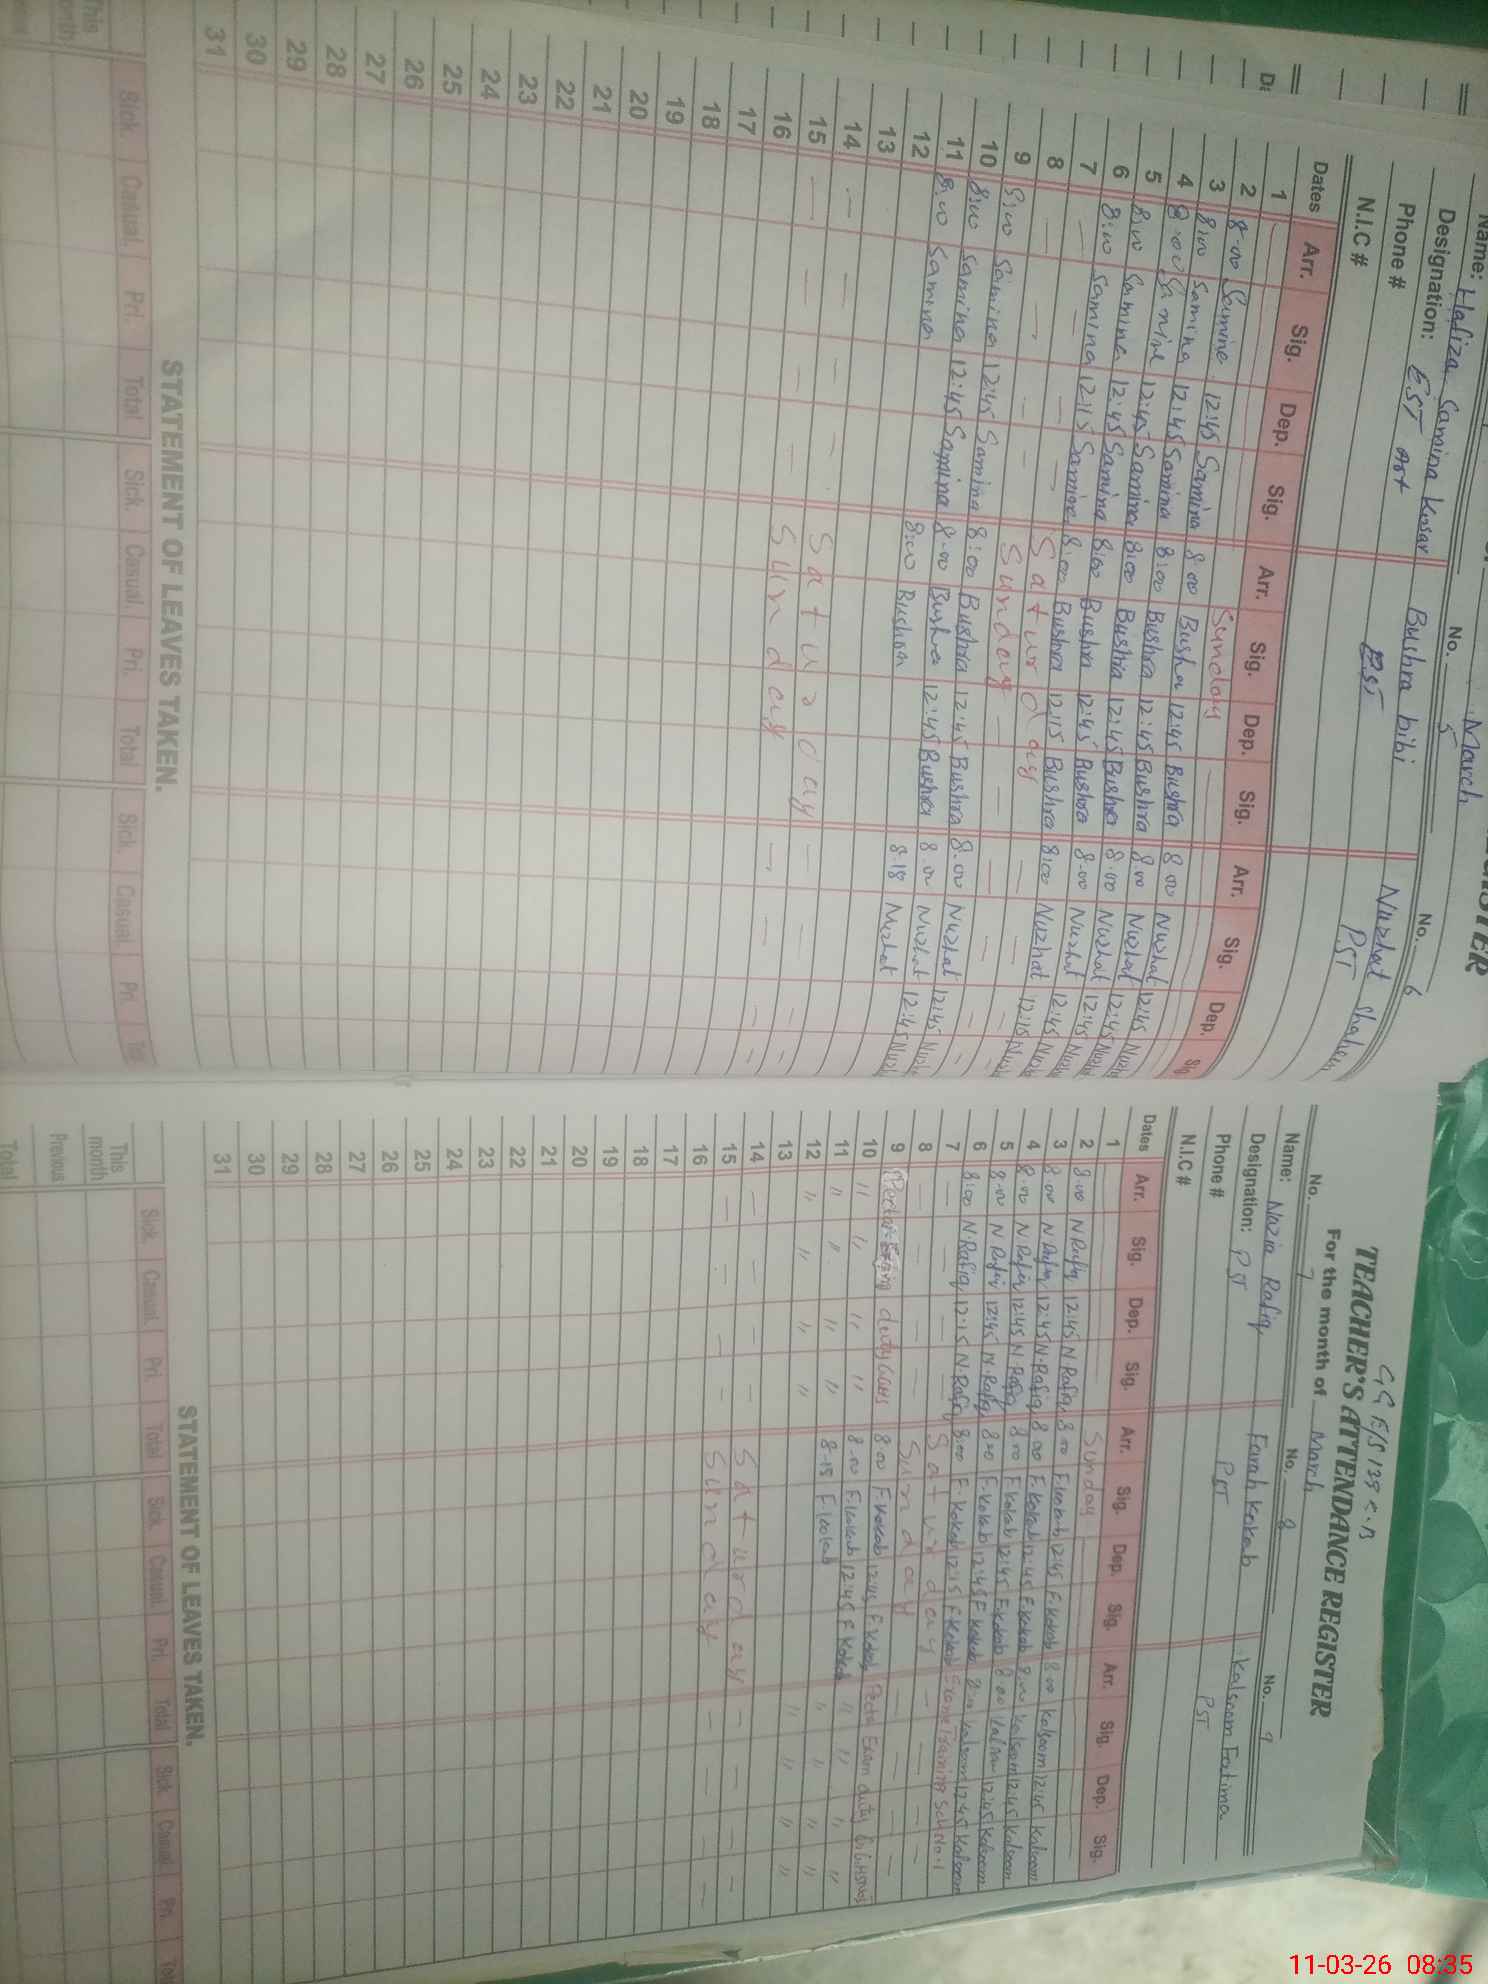 March
Name: Hafiza Samina Kosar
No. 5
Bushra bibi
No. 6
Nuzhat Shaheen
Designation: EST Art
PST
PST
Phone #
N.I.C #
Dates Arr. Sig. Dep. Sig. Arr. Sig. Dep. Sig. Arr. Sig. Dep. Sig
1 Sunday
2 8:00 Samina 12:45 Samina 8:00 Bushra 12:45 Bushra 8:00 Nuzhat 12:45
3 8:00 Samina 12:45 Samina 8:00 Bushra 12:45 Bushra 8:00 Nuzhat 12:45
4 8:00 Samina 12:45 Samina 8:00 Bushra 12:45 Bushra 8:00 Nuzhat 12:45
5 8:00 Samina 12:45 Samina 8:00 Bushra 12:45 Bushra 8:00 Nuzhat 12:45
6 8:00 Samina 12:15 Samina 8:00 Bushra 12:15 Bushra 8:00 Nuzhat 12:15
7 — — — — Saturday — —
8 — — — — Sunday — — — — —
9 8:00 Samina 12:45 Samina 8:00 Bushra 12:45 Bushra 8:00 Nuzhat 12:45
10 8:00 Samina 12:45 Samina 8:00 Bushra 12:45 Bushra 8:00 Nuzhat 12:45
11 8:00 Samina 8:00 Bushra 8:18 Nuzhat
12
13
14 — — — — Saturday — — —
15 — — — — Sunday — — — —
16
17
18
19
20
21
22
23
24
25
26
27
28
29
30
31
STATEMENT OF LEAVES TAKEN.
Sick. Casual. Pri. Total Sick. Casual. Pri. Total Sick. Casual. Pri.
This
month
GGE/S 139 E.B
TEACHER'S ATTENDANCE REGISTER
For the month of March
No. 7 No. 8 No. 9
Name: Nazia Rafiq Farah Kokab Kalsoom Fatima
Designation: PST PST PST
Phone #
N.I.C #
Dates Arr. Sig. Dep. Sig. Arr. Sig. Dep. Sig. Arr. Sig. Dep. Sig.
1 Sunday
2 8:00 N Rafiq 12:45 N Rafiq 8:00 F.kokab 12:45 F.kokab 8:00 Kalsoom 12:45 Kalsoom
3 8:00 N Rafiq 12:45 N.Rafiq 8:00 F.kokab 12:45 F.kokab 8:00 Kalsoom 12:45 Kalsoom
4 8:00 N Rafiq 12:45 N Rafiq 8:00 F.kokab 12:45 F.kokab 8:00 Kalsoom 12:45 Kalsoom
5 8:00 N Rafiq 12:45 N.Rafiq 8:00 F.kokab 12:45 F.kokab 8:00 Kalsoom 12:45 Kalsoom
6 8:00 N.Rafiq 12:15 N.Rafiq 8:00 F.kokab 12:15 F.kokab Training
7 — — — — Saturday —
8 — — — — Sunday — — — —
9 duty 8:00 F.kokab 12:45 F.kokab Exam duty
10 " " " " 8:00 F.kokab 12:45 F.kokab " " " "
11 " " " " 8:18 F.kokab " " " "
12 " " " " " " " "
13
14 — — — — Saturday — — — —
15 — — — — Sunday — — — —
16
17
18
19
20
21
22
23
24
25
26
27
28
29
30
31
STATEMENT OF LEAVES TAKEN.
Sick. Casual. Pri. Total Sick. Casual. Pri. Total Sick. Casual. Pri
This
month
Previous
Total
11-03-26 08:35